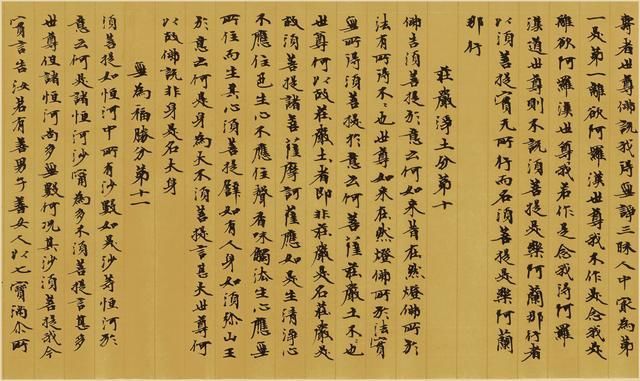 尊者世尊佛說我得無諍三昧人中冣為第
一是第一離欲阿羅漢世尊我不作是念我是
離欲阿羅漢世尊我若作是念我得阿羅
漢道世尊則不說須菩提是樂阿蘭那行者
以須菩提實无所行而名須菩提是樂阿蘭
那行
莊嚴淨土分第十
佛告須菩提於意云何如來昔在然燈佛所於
法有所得不々也世尊如來在然燈佛所於法實
無所得須菩提於意云何菩薩莊嚴土不々也
世尊何以故莊嚴土者即非莊嚴是名莊嚴是
故須菩提諸菩薩摩訶薩應如是生清淨心
不應住色生心不應住聲香味觸法生心應無
所住而生其心須菩提譬如有人身如須弥山王
於意云何是身為大不須菩提言甚大世尊何
以故佛說非身是名大身
無為福勝分第十一
須菩提如恒河中所有沙數如是沙等恒河於
意云何是諸恒河沙寧為多不須菩提言甚多
世尊但諸恒河尚多無數何況其沙須菩提我今
實言告汝若有善男子善女人以七寶滿尒所